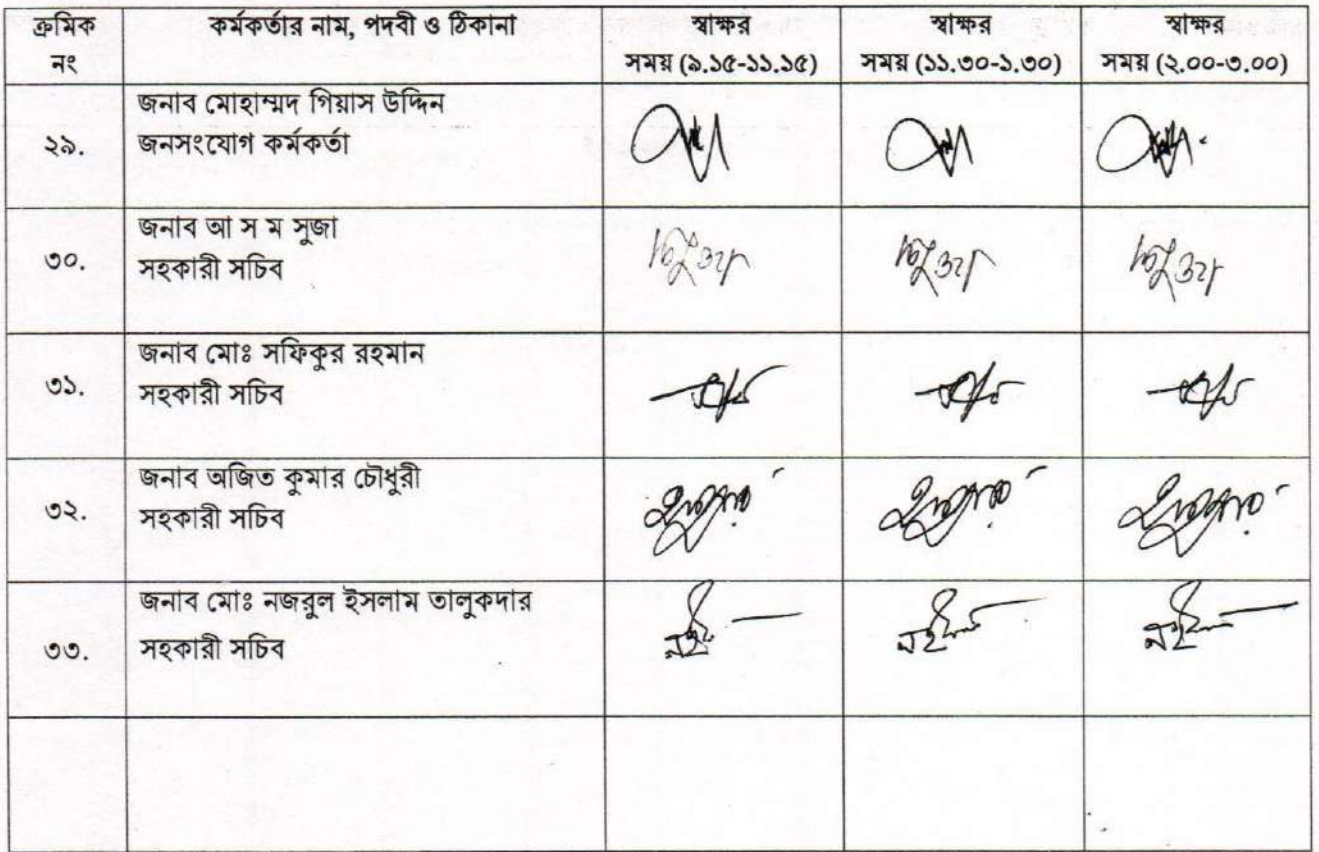 ক্রমিক নং কর্মকর্তার নাম, পদবী ও ঠিকানা স্বাক্ষর সময় (৯.১৫-১১.১৫) স্বাক্ষর সময় (১১.৩০-১.৩০) স্বাক্ষর সময় (২.০০-৩.০০)
২৯. জনাব মোহাম্মদ গিয়াস উদ্দিন
জনসংযোগ কর্মকর্তা
৩০. জনাব আ স ম সুজা
সহকারী সচিব
৩১. জনাব মোঃ সফিকুর রহমান
সহকারী সচিব
৩২. জনাব অজিত কুমার চৌধুরী
সহকারী সচিব
৩৩. জনাব মোঃ নজরুল ইসলাম তালুকদার
সহকারী সচিব